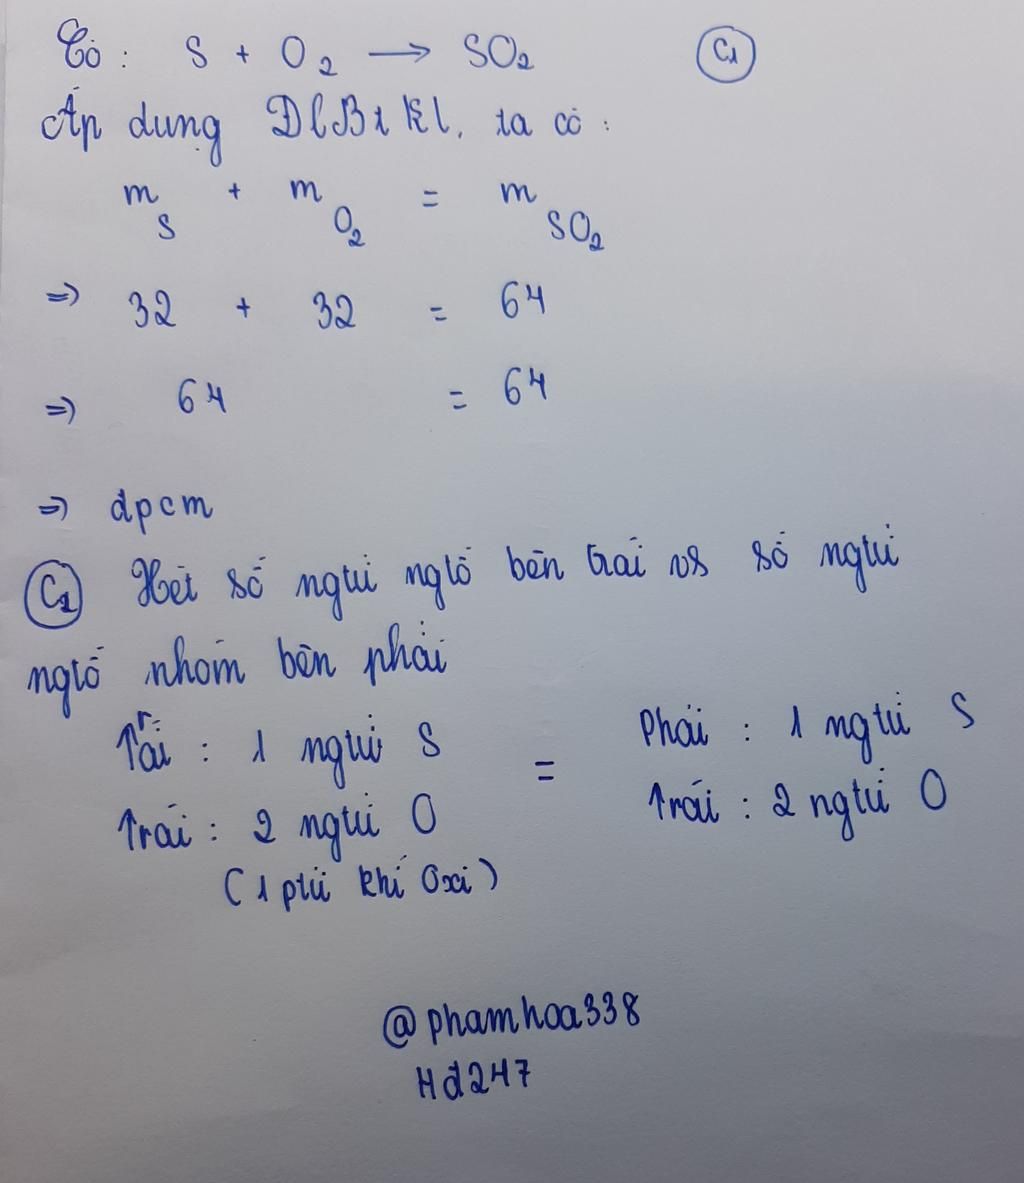 Có : S + O2 → SO2 (C1)
Áp dụng ĐLBTKL, ta có :
mS + mO2 = mSO2
=> 32 + 32 = 64
=> 64 = 64
=> đpcm
(C2) Xét số ngtử ngtố bên trái vs số ngtử
ngtố nhóm bên phải
Trái : 1 ngtử S = Phải : 1 ngtử S
Trái : 2 ngtử O Trái : 2 ngtử O
(1 ptử khí Oxi)
@phamhoa338
Hđ247